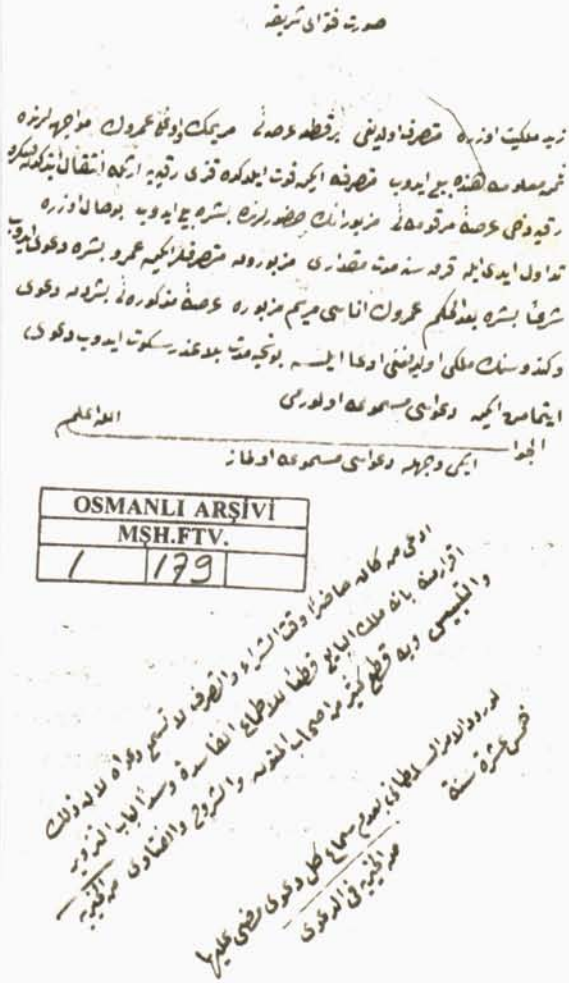 صورت فتوای شریفه
زید ملکیت اوزره متصرف اولدیغی بر قطعه عرصه‌یی مریمك اوغلی عمروك مواجهه‌لرنده
ثمن معلومه هنده بیع ایدوب متصرفه ایكن فوت ایلدكده قزی رقیه‌یه ارثله انتقال ایتدكدنصكره
رقیه دخی عرصهٔ مرقومه‌یی مزبورانك حضورلرنده بشره بیع ایدوب بو حال اوزره
تداول ایدی ایله قرق سنه مدت مقداری مزبورون متصرفلر ایكن عمرو بشره دعوی ایدوب
شرعا بشره بعد الحكم عمروك اناسی مریم مزبوره عرصهٔ مذكوره‌یی بشردن دعوی
وكندوسنك ملكی اولدیغنی ادعا ایلسه بو قدر مدت بلا عذر سكوت ایدوب دعوی
ایتمامش ایكن دعواسی مسموعه اولورمی
الجواب الله اعلم
ایكی وجهله دعواسی مسموعه اولماز
OSMANLI ARŞİVİ
MŞH.FTV.
1 179
ادعى من كان حاضرا وقت الشراء والتصرف لا تسمع دعواه لان ذلك
اقرار منه بانه ملك البايع قطعا للاطماع الفاسدة وسدا لباب التزوير
والتلبيس وبه قطع كثير من اصحاب المتون والشروح والفتاوى من الخيرية
لورود الامر السلطانى بعدم سماع كل دعوى مضى عليها
خمس عشرة سنة
من الخيرية فى الدعوى